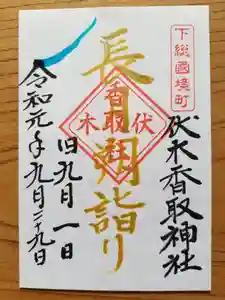 下総國境町
伏木香取神社
長月朔詣り
伏木
香取社
旧九月一日
令和元年九月二十九日